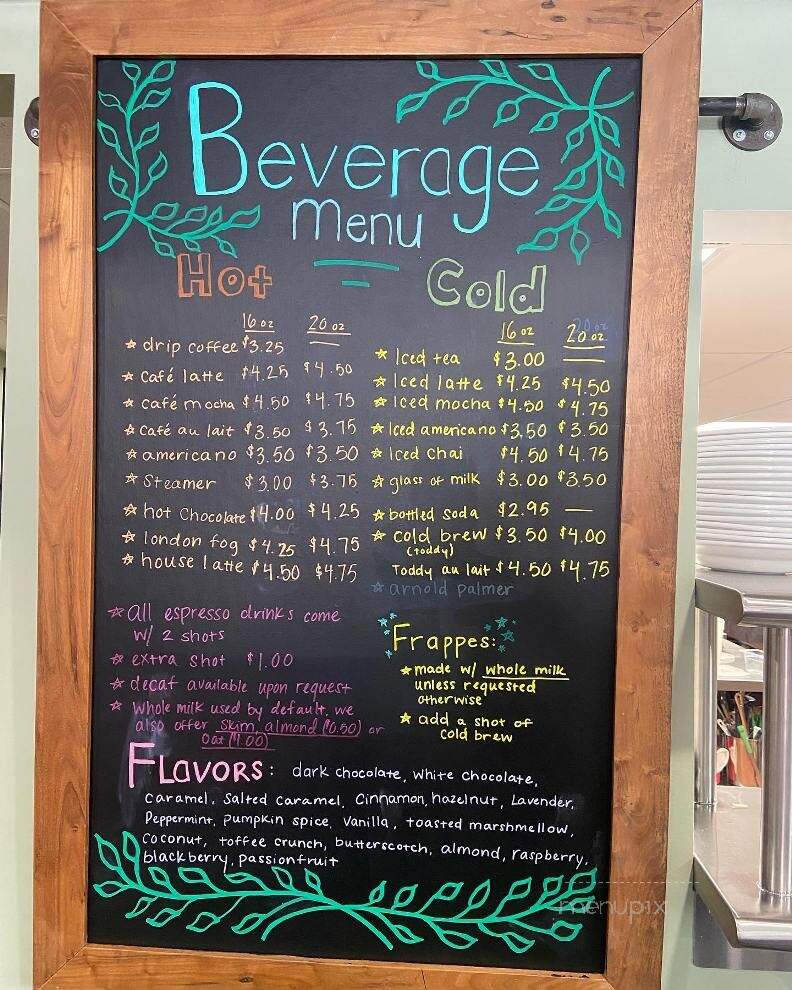 Beverage
menu
Hot
16 oz 20 oz
☆ drip coffee $3.25
☆ café latte $4.25 $4.50
☆ café mocha $4.50 $4.75
☆ café au lait $3.50 $3.75
☆ americano $3.50 $3.50
☆ Steamer $3.00 $3.75
☆ hot chocolate $4.00 $4.25
☆ london fog $4.25 $4.75
☆ house latte $4.50 $4.75
☆ all espresso drinks come
w/ 2 shots
☆ extra shot $1.00
☆ decaf available upon request
☆ whole milk used by default, we
also offer skim, almond ($0.50) or
oat ($1.00)
Cold
16 oz 20 oz
☆ Iced tea $3.00
☆ Iced latte $4.25 $4.50
☆ Iced mocha $4.50 $4.75
☆ Iced americano $3.50 $3.50
☆ Iced chai $4.50 $4.75
☆ glass of milk $3.00 $3.50
☆ bottled soda $2.95 —
☆ cold brew $3.50 $4.00
(toddy)
Toddy au lait $4.50 $4.75
☆ arnold palmer
Frappes:
☆ made w/ whole milk
unless requested
otherwise
☆ add a shot of
cold brew
FLavors: dark chocolate, white chocolate,
caramel, salted caramel, cinnamon, hazelnut, Lavender,
Peppermint, pumpkin spice, vanilla, toasted marshmellow,
coconut, toffee crunch, butterscotch, almond, raspberry,
blackberry, passionfruit
menupix